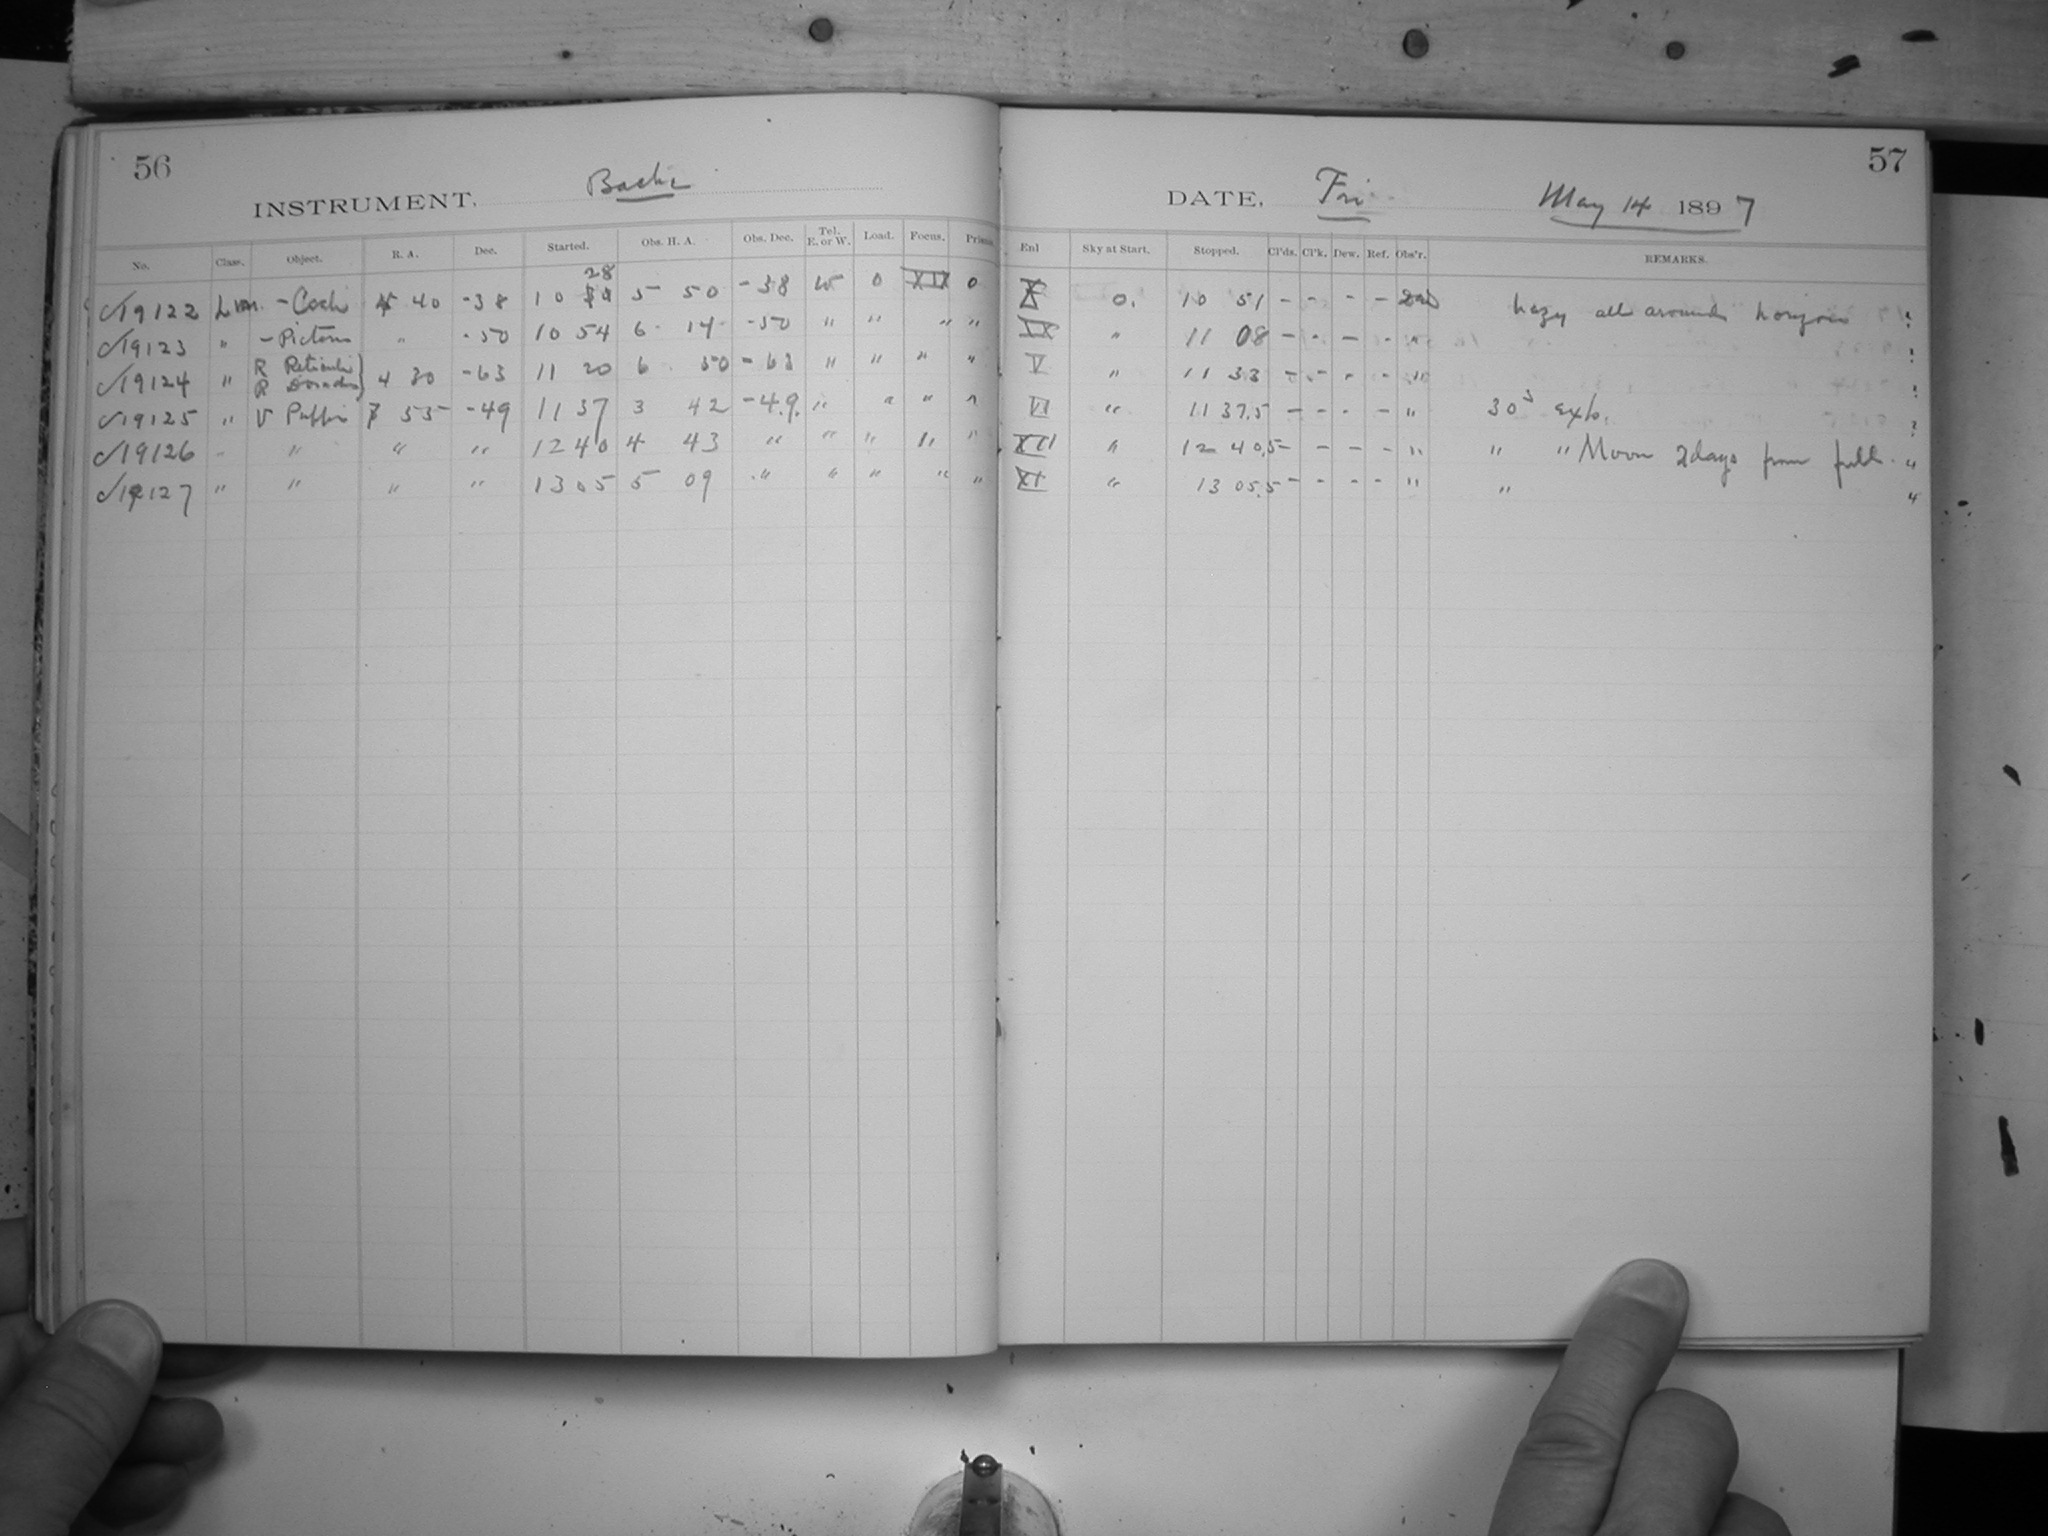 56
INSTRUMENT, Bache
No. Class. Object. R. A. Dec. Started. Obs. H. A. Obs. Dec. Tel. E. or W. Load. Focus. Prism
√19122 L. Var. - Coeli 4 40 -38 10 28 5 50 -38 W 0 XII 0
√19123 " - Pictoris " -50 10 54 6 14 -50 " " " "
√19124 " R Reticuli R Doradus } 4 30 -63 11 20 6 50 -63 " " " "
√19125 " V Puppis 7 55 -49 11 37 3 42 -49. " " " "
√19126 " " " " 12 40 4 43 " " " " "
√19127 " " " " 13 05 5 09 " " " " "
57
DATE, Fri May 14 1897
Enl Sky at Start. Stopped. Cl'ds. Cl'k. Dew. Ref. Obs'r. REMARKS.
X 0. 10 51 - - - - hazy all around horizon
IX " 11 08 - - - - "
V " 11 33 - - - - "
VI " 11 37.5 - - - - " 30s exp.
XII " 12 40.5 - - - - " " " Moon 2 days from full.
XI " 13 05.5 - - - - " "